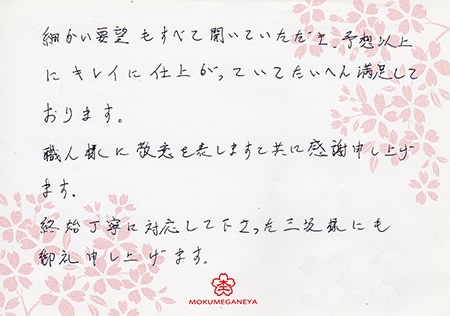 細かい要望もすべて聞いていただき、予想以上
にキレイに仕上がっていてたいへん満足して
おります。
職人様に敬意を表しますと共に感謝申し上げ
ます。
終始丁寧に対応して下さった三坂様にも
御礼申し上げます。
MOKUMEGANEYA